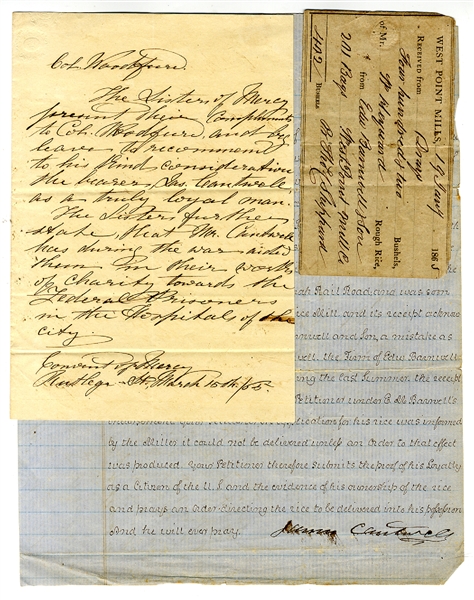 Col. Woodford.
The Sisters of Mercy
present their compliments
to Col. Woodford, and beg
leave to recommend
to his kind consideration
the bearer Jas. Cantwell
as a truly loyal man.
The Sisters further
state that Mr. Cantwell
has during the war aided
them in their works
of Charity towards the
Federal Prisoners
in the Hospitals of the
city.
Convent of Mercy
March 15th/65.
WEST POINT MILLS,
186
Received from
Four hundred & two
Bushels,
Rough Rice,
of Mr.
from Edw Barnwell & Son
201 Bags West Point Mill
402 Bushels
Rail Road and was
Mill and its receipt
and Son, a mistake as
the Firm of Edw Barnwell
the last Summer the receipt
Petitioner under E. Barnwell's
application for his rice was informed
by the Miller it could not be delivered unless an Order to that effect
was produced. Your Petitioner therefore submits the proof of his Loyalty
as a Citizen of the U.S. and the evidence of his ownership of the rice
and prays an Order directing the rice to be delivered into his possession
And he will ever pray.
James Cantwell